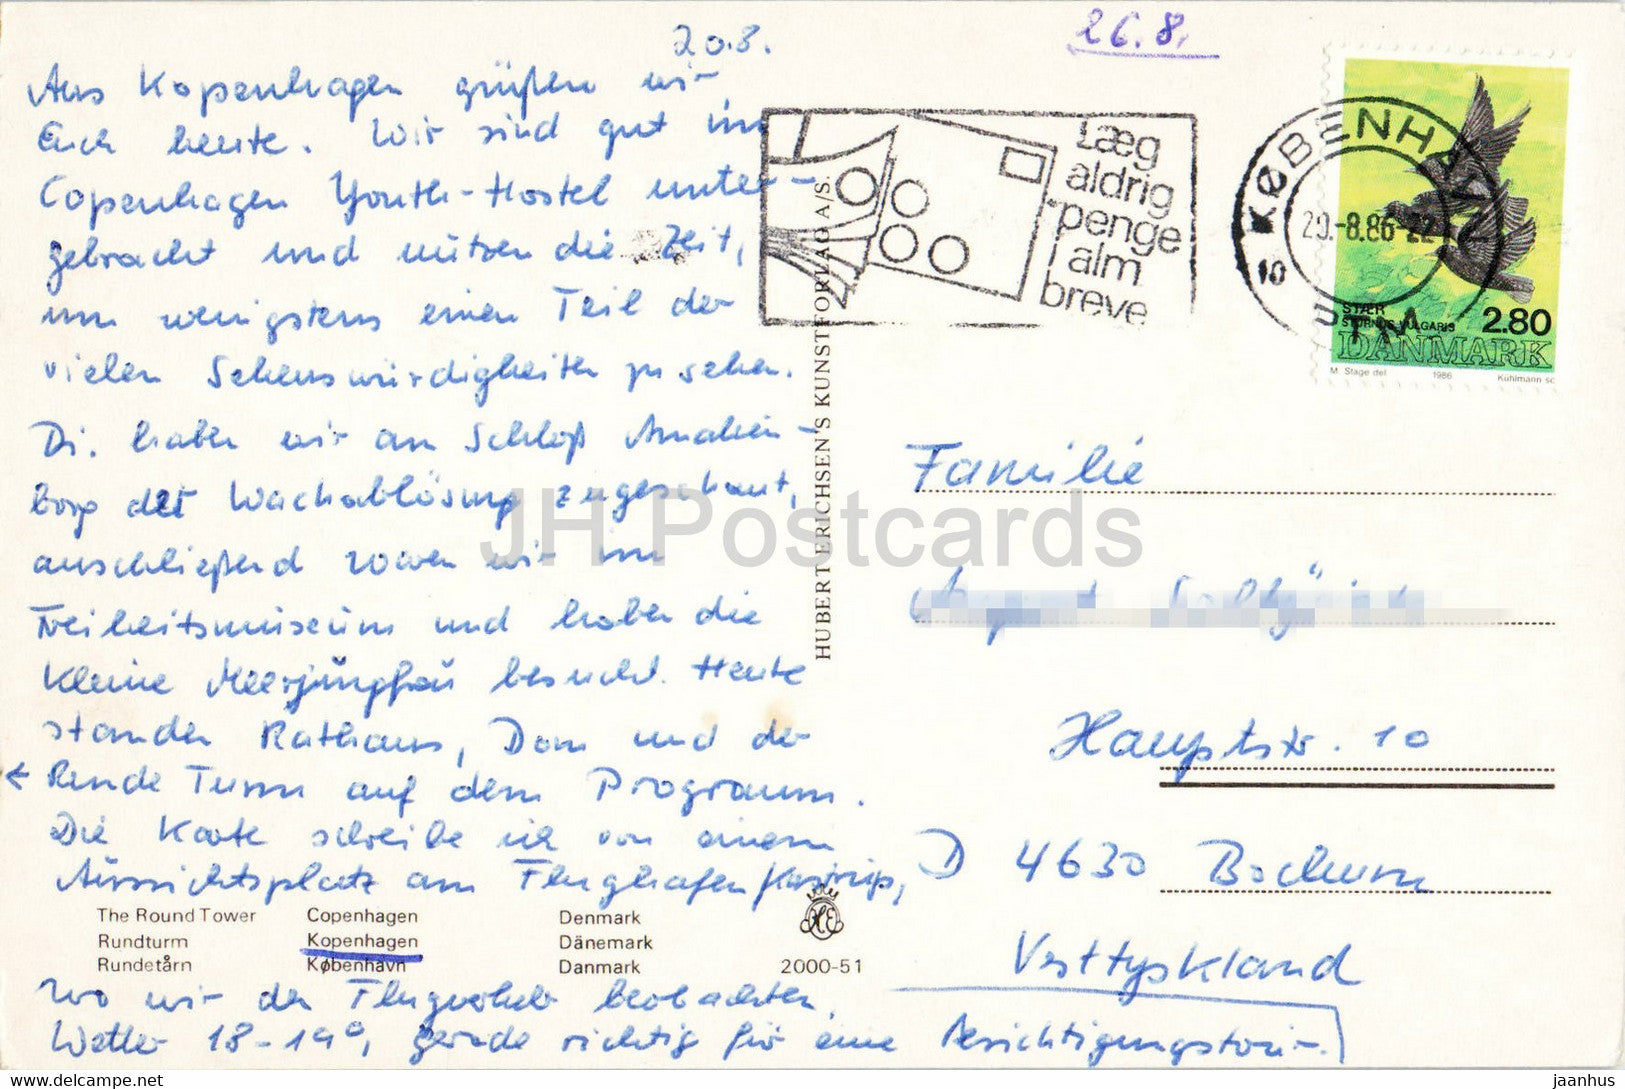 20.8.
26.8.
Aus Kopenhagen grüßen wir
Euch heute. Wir sind gut im
Copenhagen Youth-Hostel unter-
gebracht und nützen die Zeit,
um wenigstens einen Teil der
vielen Sehenswürdigkeiten zu sehen.
Di. haben wir an Schloß Amalien-
borg der Wachablösung zugeschaut,
anschließend waren wir im
Freiheitsmuseum und haben die
kleine Meerjungfrau besucht. Heute
standen Rathaus, Dom und der
← Runde Turm auf dem Programm.
Die Karte schreibe ich von einem
Aussichtsplatz am Flughafen/Kastrup,
The Round Tower Copenhagen Denmark
Rundturm Kopenhagen Dänemark
Rundetårn København Danmark
2000-51
wo wir den Flugverkehr beobachten.
Wetter 18-19°, gerade richtig für eine Besichtigungstour.
HUBERT ERICHSEN'S KUNSTFORLAG A/S.
Læg
aldrig
penge
i alm
breve
KØBENHAVN
20.-8.86-22
10
OMK
STÆR
STURNUS VULGARIS
2.80
DANMARK
M. Stage del 1986 Kühlmann sc
Familie
Hauptstr. 10
D 4630 Bochum
Vesttyskland
JH Postcards
jaanhus @ delcampe.net